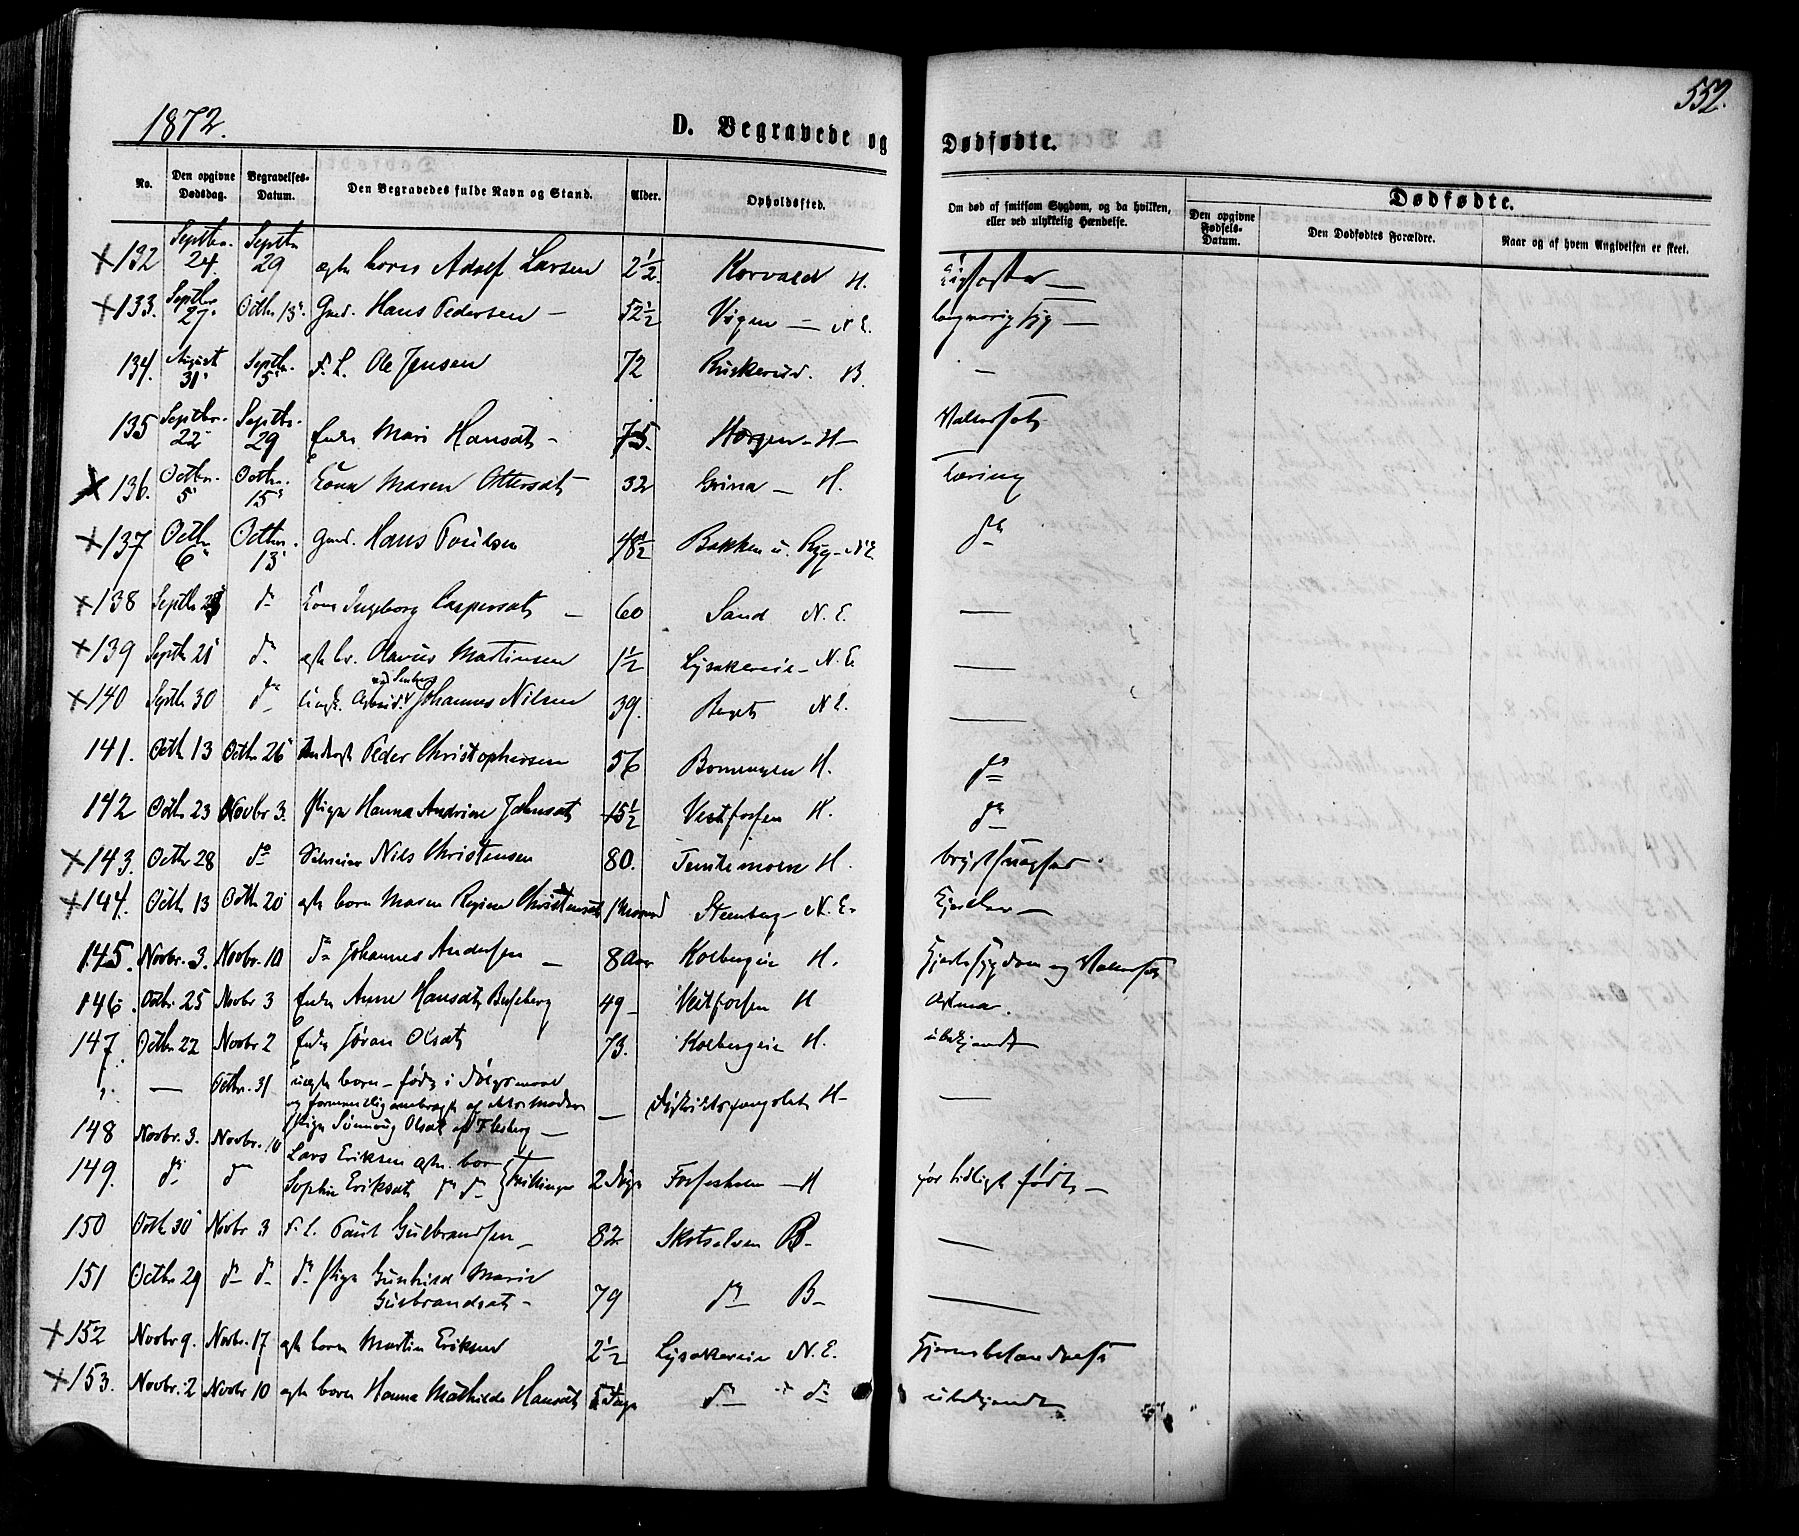 1872.
552.
D. Begravede og Dødfødte.
No. Den opgivne Dødsdag. Begravelses-Datum. Den Begravedes fulde Navn og Stand. Alder. Opholdssted. Om død af smitsom Sygdom, og da hvilken, eller ved ulykkelig Hændelse. Dødfødte.
Den opgivne Fødsels-Datum. Den Dødfødtes Forældre. Naar og af hvem Angivelsen er skeet.
132 Septbr. 24. Septbr 29 ægte barn Adolf Larsen 2½ Korvald H.
133. Septbr 27 Octbr 13 Gmd. Hans Pedersen — 52½ Vigen — N.E. langvarig Syg —
134. August 31 Septbr. 5 F. L. Ole Jensen 72 Buskerud. B. —
135 Septbr. 22 Septbr. 29 Enke Mari Hansdt — 75. Horgen — H — Vattersot
136. Octbr. 5 Octbr. 15 Kona Maren Ottersdt 32 Grina — H. Tæring
137 Octbr 6 Octbr. 13 Gmd. Hans Poulsen 48½ Bakken u. Ryg — N.E. do
138 Septbr do Kone Ingeborg Caspersdt — 60 Sand N.E. —
139 Septbr 21 do ægte br. Olavus Martinsen 1½ Lysakereie — N.E. —
140 Septbr 30 do Ungk. Arbeid. Johannes Nilsen 39. N.E. —
141. Octbr 13 Octbr 26 Peder Christophersen 56 H. do
142 Octbr 23 Novbr 3. Pige Hanna Andrine Johnsdt 15½ Vestfosen H. do
143. Octbr 28 do Selveier Nils Christensen 80. H.
144. Octbr 13 Octbr 20 ægte barn Maren Regine Christensdt 1 Maaned Steenberg — N.E. —
145. Novbr. 3. Novbr. 10 do Johannes Andersen — 8 Aar Kolbergeie H. Hjertesygdom og Vattersot
146. Octbr. 25 Novbr 3 Enke Anne Hansdt 49 — Vestfosen H Astma.
147. Octbr 22 Novbr 2 Enke Jøran Olsdt 73. Kolbergeie H. ubekjendt
" — Octbr. 31 uægte barn — født i Dølgsmaal
og formentlig ombragt af dets Moder — Distriktsfængslet H — —
Pige Sünnoug Olsdt af Flesberg —
148 Novbr. 3. Novbr. 10 Lars Eriksen ægte barn
149. do do Sophie Eriksdt do do Tvillinger 2 Dage Fosesholm — H for tidligt født —
150 Octbr 30 Novbr 3 F. L. Paul Gulbrandsen — 82 Skotselven B — —
151 Octbr 29 do do do Pige Gunhild Marie
Gulbrandsdt — 79 do B — —
152 Novbr 9. Novbr. 17 ægte barn Martin Eriksen 2½ Lysakereie N.E. Hjernebetændelse
153. Novbr. 2 Novbr 10 ægte barn Hanna Mathilde Hansdt 5 Dage do do ubekjendt